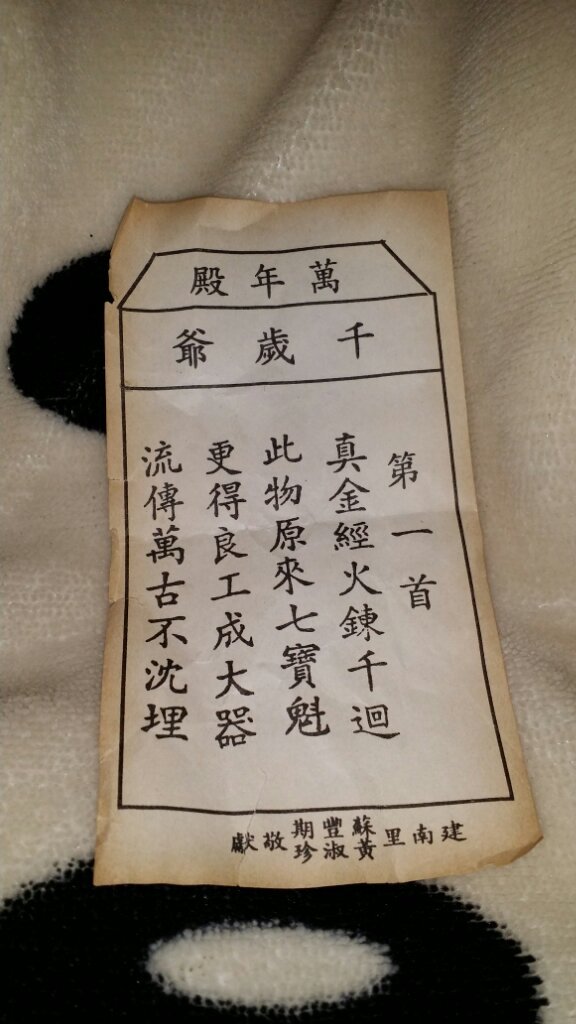 萬年殿
千歲爺
第一首
真金經火鍊千迴
此物原來七寶魁
更得良工成大器
流傳萬古不沈埋
建南里蘇豐期黃淑珍敬獻